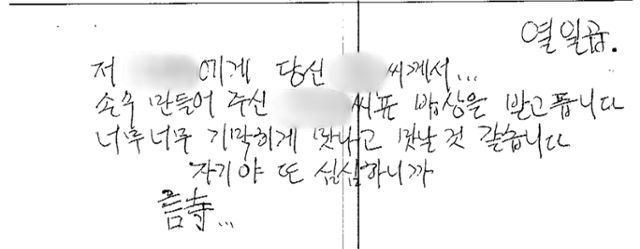 열일곱.
저 에게 당신 씨께서...
손수 만들어 주신 씨표 밥상을 받고픕니다
너무너무 기막히게 맛나고 맛날 것 같습니다
자기야 또 심심하니까
言寺...